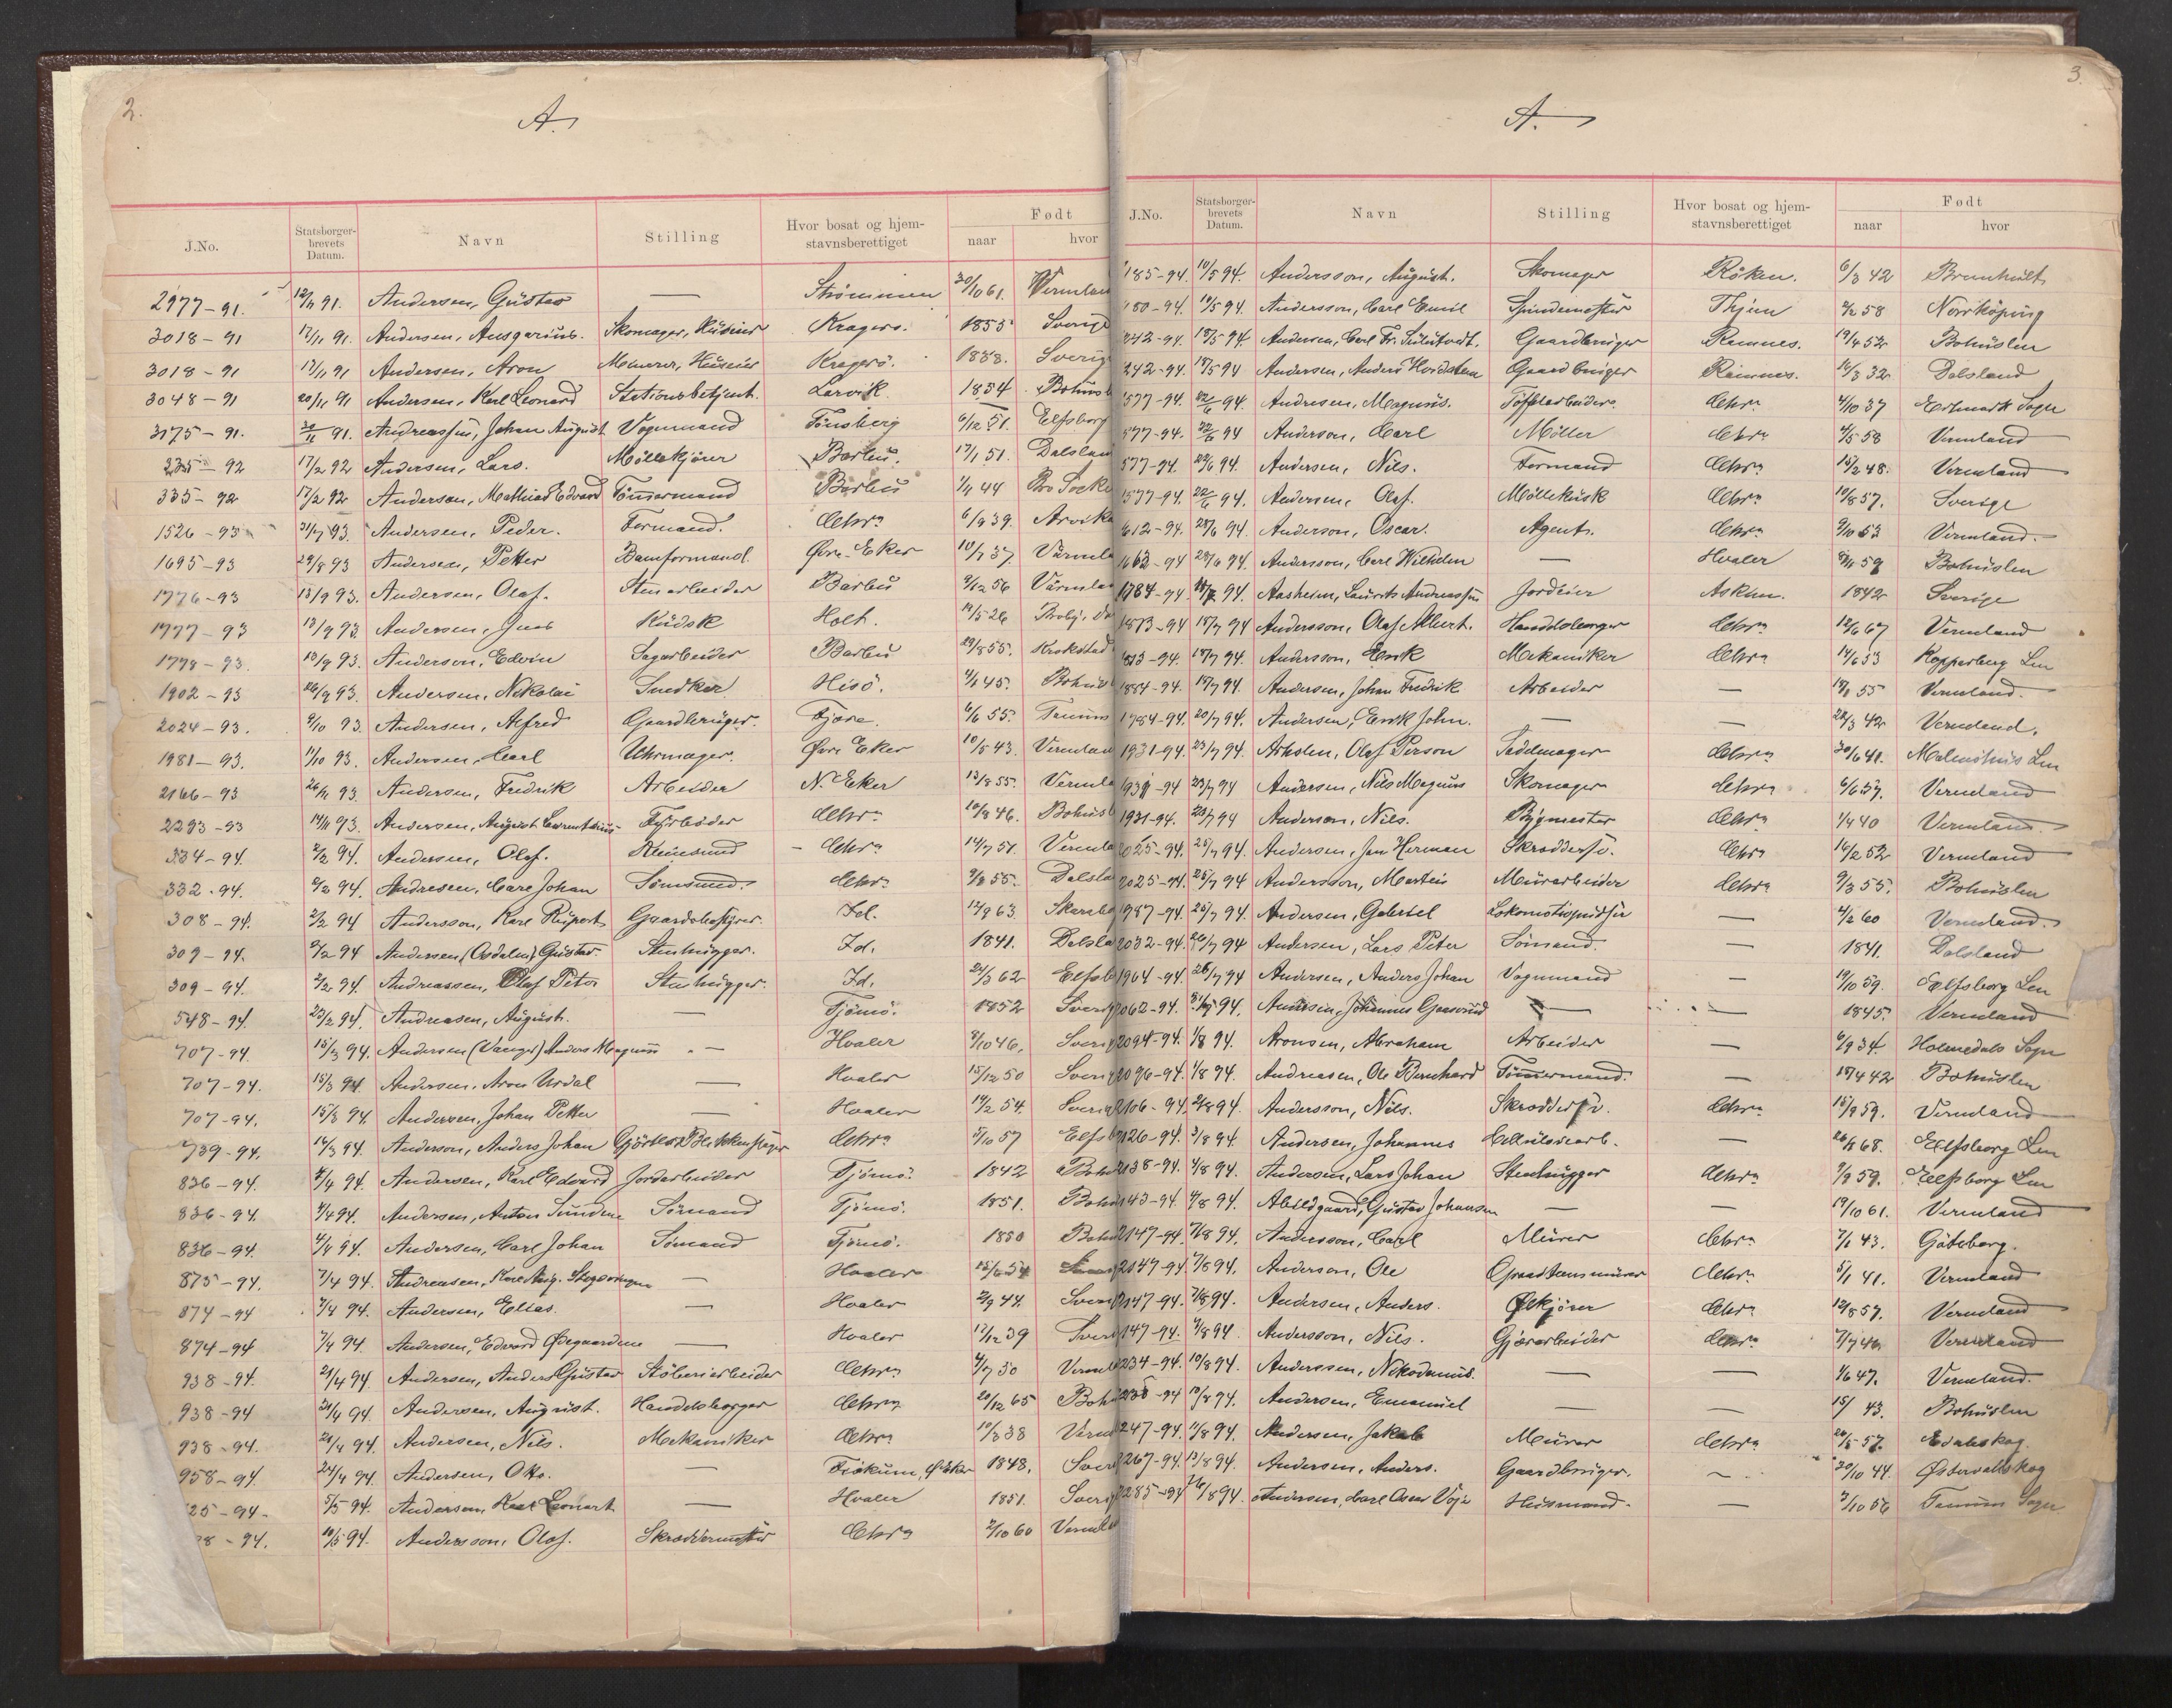 2.
A.
J.No. Statsborger-brevets Datum. Navn Stilling Hvor bosat og hjem-stavnsberettiget Født naar hvor
2977-91. 12/11 91. Andersen, Gustav — Strömmen 30/10 61. Vermlan
3018-91 17/11 91. Andersen, Ansgarius. Skomager, Huseier Kragerö. 1855 Sverig
3018-91 17/11 91 Andersen, Aron Murer, Huseier Kragerö. 1858. Sverig
3048-91 20/11 91 Andersen, Karl Leonard Stationsbetjent. Larvik. 1854 Bohusl
3175-91. 30/11 91. Andreassen, Johan August Vognmand Tönsberg 6/12 51. Elfsborg
335-92 17/2 92 Andersen, Lars. Möllekjörer Barbu. 17/1 51. Dalslan
335-92 17/2 92 Andersen, Mathias Edvard Tömmermand Barbu 1/4 44 Bro Socke
1526-93 31/7 93. Andersen, Peder. Formand. Chra 6/9 39. Arvika
1695-93 29/8 93 Andersen, Petter Bamformand Øvre Eker 10/7 37. Värmla
1776-93 13/9 93. Andersen, Olaf. Stenarbeider Barbu 9/12 56 Värmla
1777-93 13/9 93. Andersen, Jens Kudsk Holt. 19/5 26
1778-93. 13/9 93. Andersen, Edvin Sagarbeider Barbu 29/8 55. Krokstad
1902-93 26/9 93. Andersen, Nikolai Snedker Hisö. 45. Bohusl
2024-93. 9/10 93. Andersen, Alfred Gaardbruger. Fjære. 6/6 55. Tanum
1981-93. 11/10 93. Andersen, Carl Uhrmager. Øvre Eker 10/5 43. Vermlan
2166-93 93. Andersen, Fredrik Arbeider N. Eker 13/8 55. Vermla
2293-93 14/11 93. Andersen, August Laurentius Fyrböder Chra 10/8 46. Bohusl
334-94. 2/2 94. Andersen, Olaf. Kleinsmed — Chra 14/7 51. Vermla
332.94. 2/2 94. Andresen, Carl Johan Sömand. Chra 9/8 55. Dalsla
308-94. 2/2 94 Andersson, Karl Rupert Gaardsbestyrer. Id. 12/9 63. Skarabo
309-94. 2/2 94 Andersen (Osdalen) Gustav Stenhugger. Id. 1841. Dalsla
309-94. 2/2 94. Andreassen, Olaf Peter Stenhugger. Id. 24/3 62 Elfsb
548-94. 23/2 94. Andreasen, August. — Tjömö. 1852 Sverig
707-94. 15/3 94. Andersen (Vanger) Anders Magnus — Hvaler 8/10 46. Sverig
707-94. 15/3 94. Andersen, Aron Urdal — Hvaler 15/12 50 Sverig
707-94. 15/3 94. Andersen, Johan Petter — Hvaler 14/2 54. Sverig
739-94. 14/3 94. Anderson, Anders Johan Gjörtler & Blikkenslager Chra 5/10 57 Elfsb
836-94. 4/4 94. Andersen, Karl Edvard Jordarbeider Tjömö. 1842 Bohu
836-94. 4/4 94. Andersen, Anton Sundene Sömand Tjömö. 1851. Bohu
836-94. 4/4 94. Andersen, Carl Johan Sömand Tjömö. 1850 Bohu
875-94. 7/4 94. Andreasen, Karl Aug. — Hvaler
874-94 7/4 94. Andersen, Elias. — Hvaler 2/9 44. Sveri
874-94 7/4 94. Andersen, Edvard Ødegaardene — Hvaler 17/12 39 Sveri
938-94. 21/4 94. Andersen, Anders Gustav Stöberiarbeider Chra 4/7 30 Verml
938-94 21/4 94. Andersen, August. Handelsborger Chra 20/12 65 Bohu
938-94. 21/4 94. Andersen, Nils. Mekaniker Chra 10/3 38 Verm
958-94. 24/4 94. Andersen, Otto. — Fiskum, Ø. Eker 1848. Sveri
25-94- 5/5 94. Andersen, Karl Lennart — Hvaler 1851. Sverig
8-94. 10/5 94. Andersson, Olaf. Skræddermester Chra 2/10 60 Vermla
3.
A.
J.No. Statsborger-brevets Datum. Navn Stilling Hvor bosat og hjem-stavnsberettiget Født naar hvor
185-94. 10/5 94. Andersson, August. Skomager Röken. 6/3 42 Brunhult
180-94. 10/5 94. Andersson, Carl Emil Spindemester Thjem 2/2 58 Norrköping
242-94. 18/5 94. Andersen, Carl Fr. Gaardbruger Ramnes. 19/4 52 Bohuslen
242-94. 18/5 94 Andersen, Anders Gaardbruger Ramnes. 16/3 32 Dalsland
577-94. 22/6 94. Andresen, Magnus. Töffelarbeider Chra 4/10 37 Edsmark Sogn
577-94. 22/6 94 Anderson, Carl Möller Chra 4/5 58 Vermland
577-94. 22/6 94. Andersen, Nils. Formand Chra 15/2 48. Vermland
1577-94. 22/6 94. Andersen, Olaf. Möllekusk Chra 10/8 57. Sverige
612-94. 28/6 94. Anderson, Oscar. Agent. Chra 9/10 53 Vermland.
1663-94 28/6 94. Andersson, Carl Wilhelm — Hvaler 59 Bohuslen
1784-94. 94. Aasheim, Laurits Andreassen Jordeier Askim. 1842 Sverige
1873-94 18/7 94 Andersson, Olaf Albert. Handelsborger Chra 12/6 67 Vermland
1873-94. 18/7 94. Andersson, Erik Mekaniker Chra 14/6 53 Kopparberg Len
1884-94. 18/7 94. Andersen, Johan Fredrik Arbeider — 55 Vermland.
1784-94. 20/7 94. Andersen, Erik John. — — 28/3 42 Vermland.
1931-94. 23/7 94. Arhslen, Olaf Person Sadelmager Chra 30/6 41. Malmöhus Len
1931-94 23/7 94 Andersen, Nils Magnus Skomager Chra 6/6 37. Vermland
1931-94. 23/7 94 Anderson, Nils. Bygmester Chra 1/4 40 Vermland.
2025-94. 25/7 94. Andersen, Jan Herman Skræddersv. Chra 16/2 52 Vermland
2025-94. 25/7 94 Andersson, Martin Murarbeider Chra 9/3 55. Bohuslen
1987-94. 25/7 94. Andersen, Gabriel Lokomotivpudser — 4/2 60 Vermland.
2032-94. 26/7 94 Andersen, Lars Peter Sömand. — 1841. Dalsland
1964-94. 26/7 94 Andersen, Anders Johan Vognmand — 19/10 59. Elfsborg Len
2062-94. 31/7 94. Andersen, Johannes — — 1845. Vermland
2094-94. 1/8 94. Aronsen, Abraham Arbeider — 6/9 34. Holmedals Sogn
2096-94. 1/8 94. Andreasen, Ole Bernhard Tömmermand. — 18/4 42 Bohuslen
2106-94. 2/8 94. Andersson, Nils. Skræddersv. Chra 15/9 59. Vermland
2126-94. 3/8 94. Andersen, Johannes Cellulosearb. — 26/1 68. Elfsborg Len
2138-94. 4/8 94. Andersen, Lars Johan Stenhugger Chra 9/9 59. Elfsborg Len
2143-94. 4/8 94. Abildgaard, Gustav Johansen — — 19/10 61. Vermland
2147-94. 7/8 94. Andersson, Carl Murer Chra 7/1 43. Göteborg.
2147-94. 7/8 94. Anderson, Ole Graastensmurer Chra 5/1 41. Vermland
2147-94. 7/8 94. Andersen, Anders. Ølkjörer Chra 12/8 57. Vermland
2147-94. 7/8 94. Andersson, Nils. Gjærarbeider Chra 7/7 46. Vermland
2234-94. 10/8 94. Anderssen, Nikodemus. — — 1/6 47. Vermland.
2235-94 10/8 94. Andersen, Emanuel — — 15/ 43. Bohuslen
2247-94. 11/8 94. Andersen, Jakob Murer Chra 20/5 57. Edaleskog.
2267-94. 13/8 94. Andersen, Anders. Gaardbruger. — 30/10 44. Östervallskog
2285-94 16/8 94. Andersen, Carl Oscar Husmand. — 3/10 56 Tanum Sogn